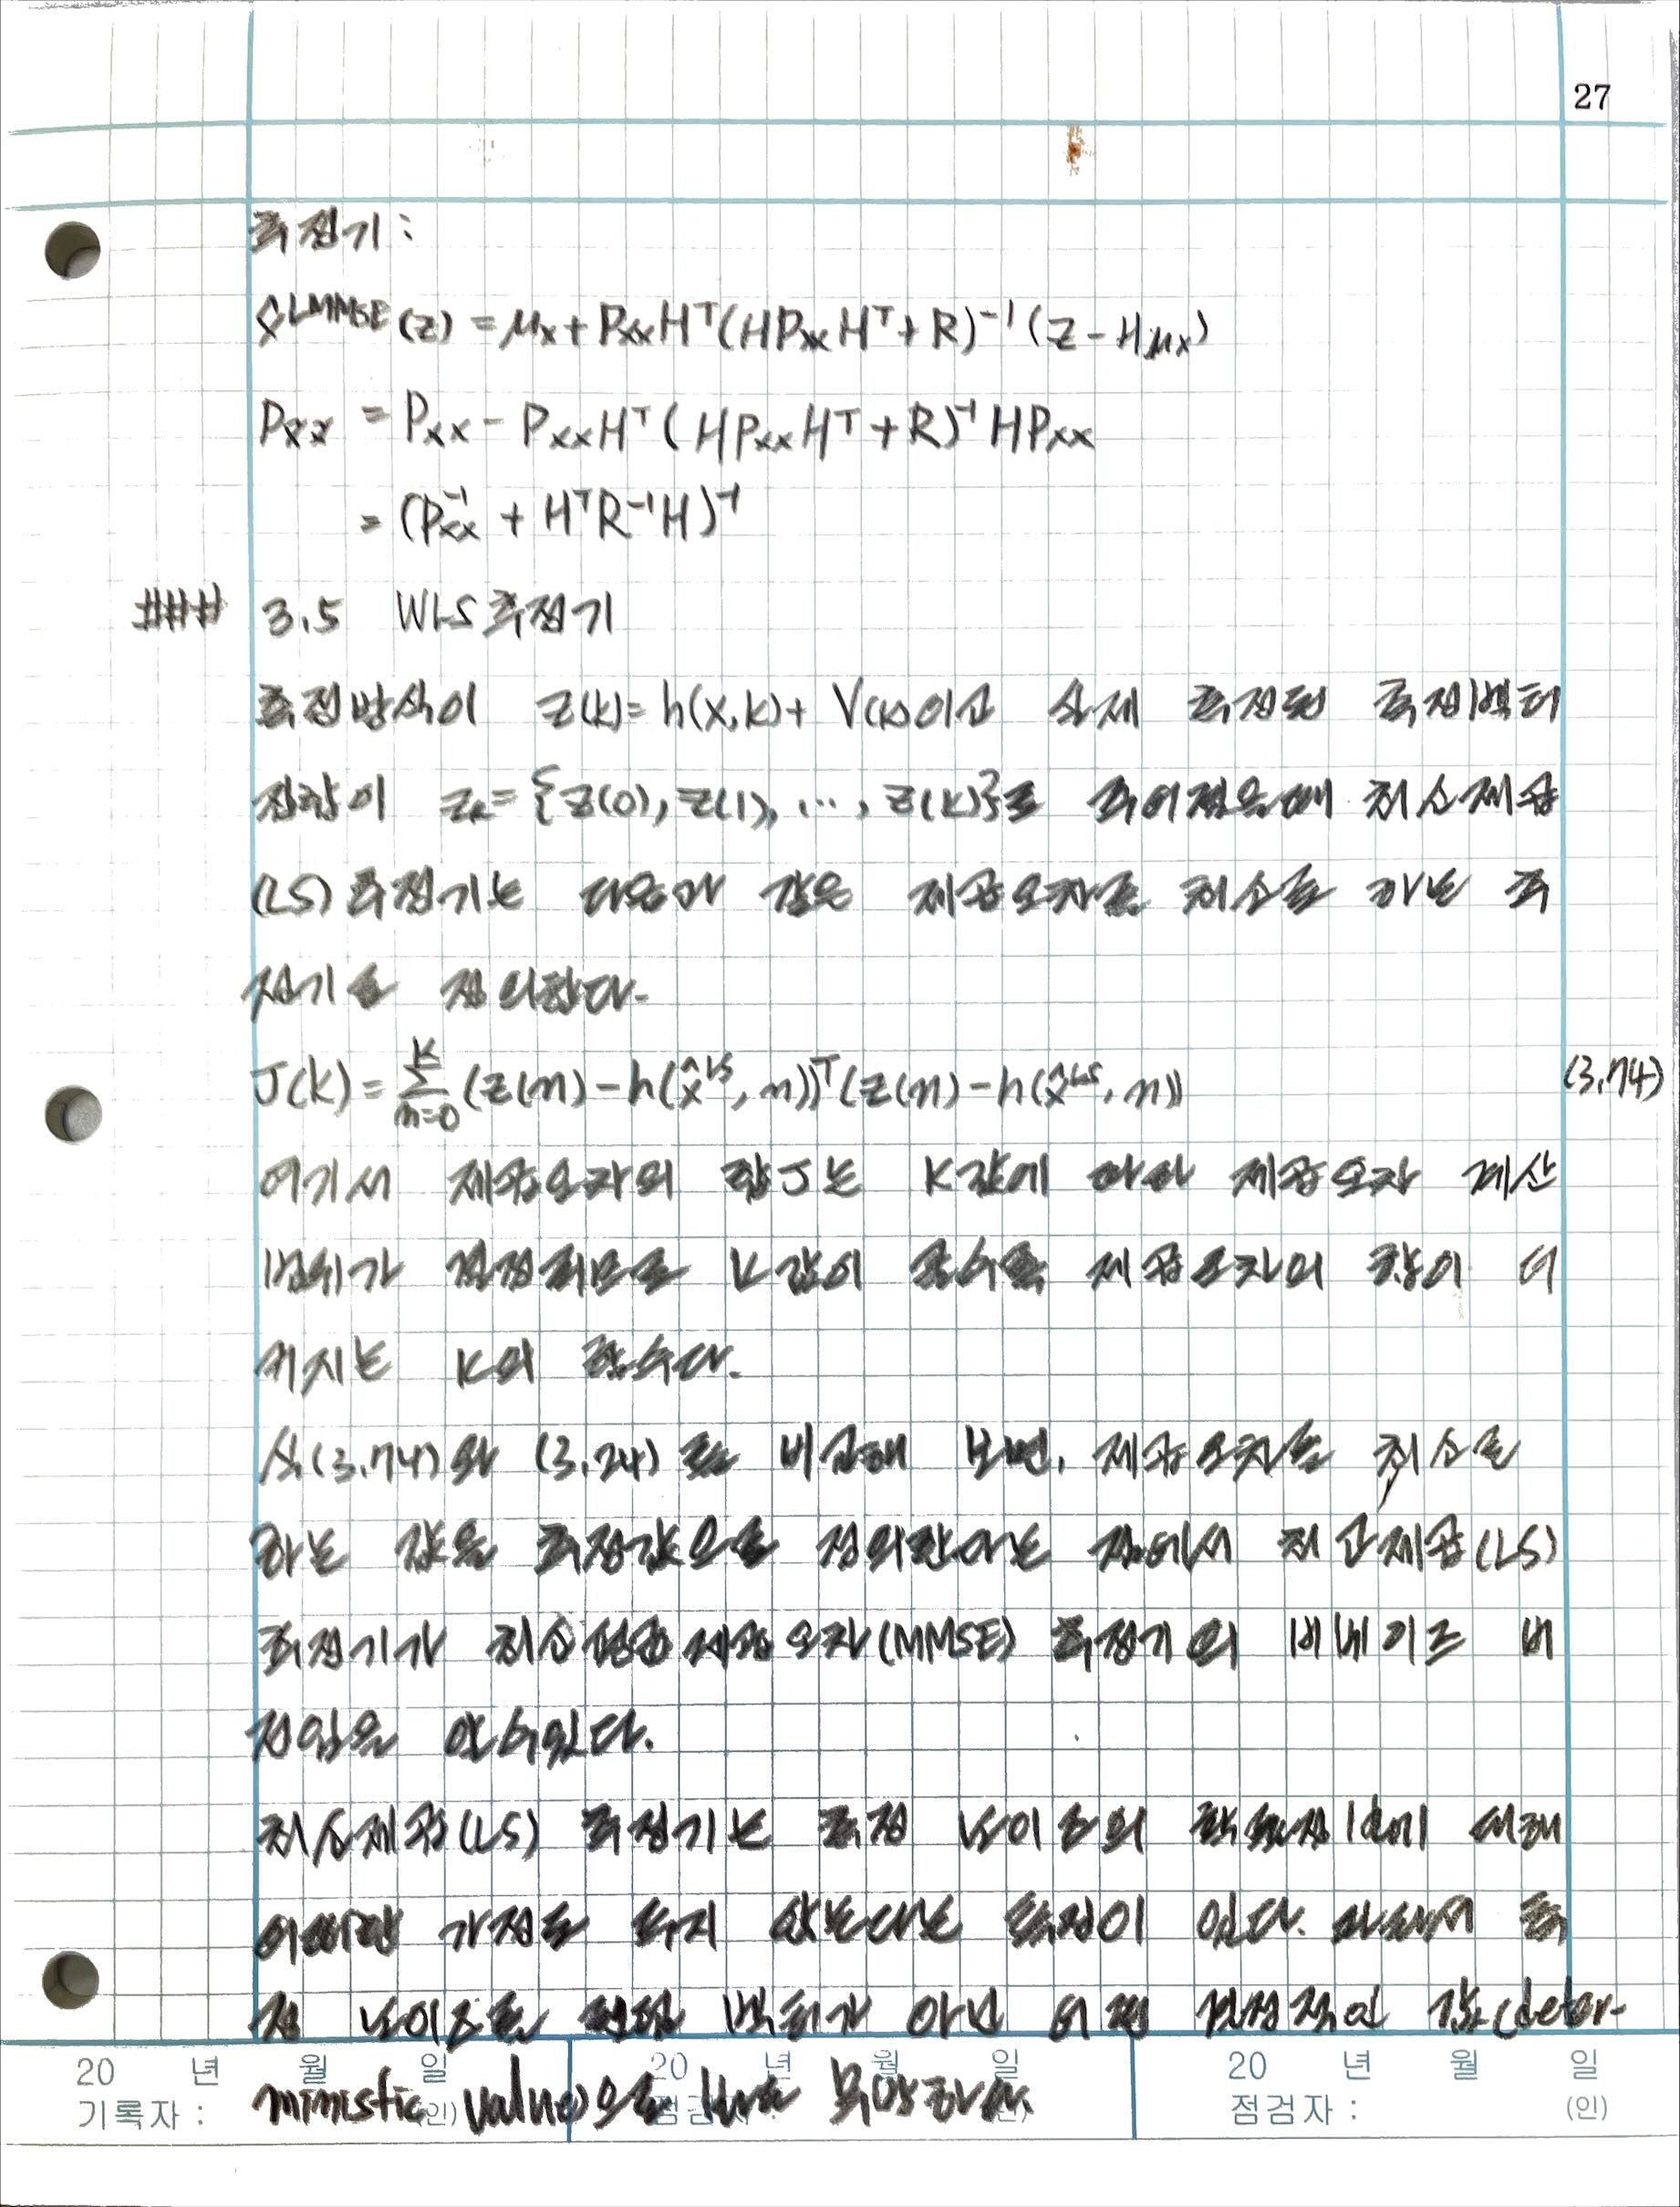 27
추정기:
x̂^LMMSE(z) = μx + PxxH^T(HPxxH^T + R)^-1(z - Hμx)
Px̃x̃ = Pxx - PxxH^T(HPxxH^T + R)^-1HPxx
= (Pxx^-1 + H^TR^-1H)^-1
### 3.5 WLS 추정기
측정방식이 z(k)=h(x,k)+V(k)이고 실제 측정된 측정벡터
집합이 Zk={z(0), z(1), ..., z(k)}로 주어졌을때 최소제곱
(LS) 추정기는 다음과 같은 제곱오차를 최소로 하는 추
정기로 정의한다.
J(k) = Σ_{n=0}^{k} (z(n)-h(x̂^LS, n))^T(z(n)-h(x̂^LS, n)) (3.74)
여기서 제곱오차의 합 J는 k값에 따라 제곱오차 계산
범위가 결정되므로 k값이 클수록 제곱오차의 합이 더
커지는 k의 함수다.
식(3.74)와 (3.24)를 비교해 보면, 제곱오차를 최소로
하는 값을 추정값으로 정의한다는 점에서 최소제곱(LS)
추정기가 최소평균제곱오차(MMSE) 추정기의 비베이즈 버
전임을 알수있다.
최소제곱(LS) 추정기는 측정 노이즈의 확률정보에 대해
어떠한 가정을 두지 않는다는 특징이 있다. 따라서 측
정 노이즈를 랜덤 벡터가 아닌 어떤 결정적인 값(deter-
ministic value)으로 봐도 무방하다.
20 년 월 일 20 년 월 일 20 년 월 일
기록자 : (인) 점검자 : (인) 점검자 : (인)